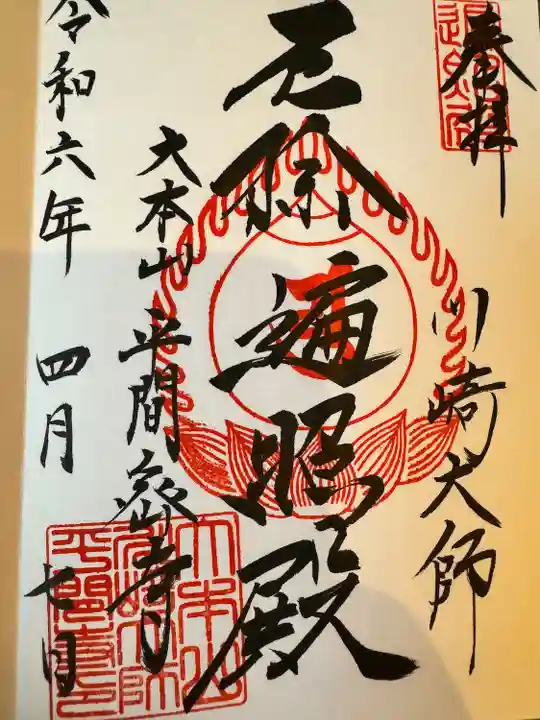 奉拝
川崎大師
厄除遍照殿
大本山 平間寺
令和六年 四月 七日